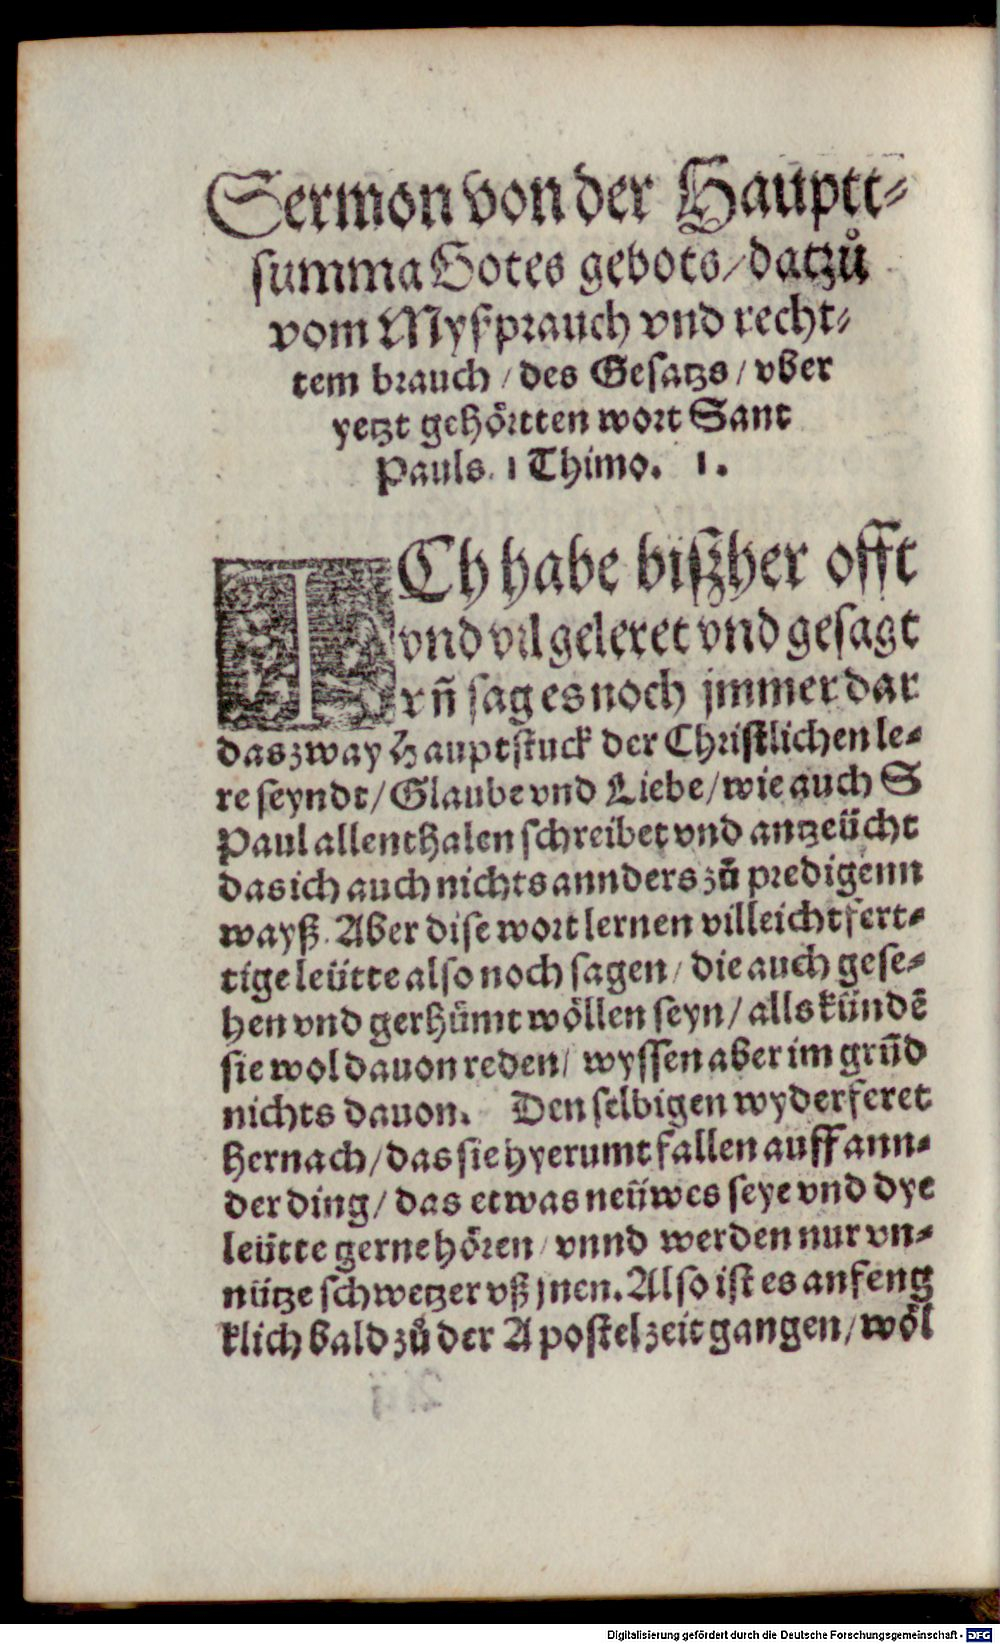 Sermon von der Hauptt⸗
summa Gotes gebots/datzů
vom Myſsprauch vnd recht⸗
tem brauch / des Geſatzs / vber
yetzt gehörtten wort Sant
Pauls. 1 Thimo. 1.
ICh habe biſzher offt
vnd vil geleret vnd geſagt
vñ ſag es noch jmmer dar
das zway Hauptſtuck der Chriſtlichen le⸗
re ſeyndt/ Glaube vnd Liebe/ wie auch S
Paul allenthalen ſchreibet vnd antzeücht
das ich auch nichts annders zů predigenn
wayß. Aber diſe wort lernen villeicht fert⸗
tige leütte alſo noch ſagen/ die auch geſe⸗
hen vnd gerhümt wöllen ſeyn/ alls kündē
ſie wol dauon reden/ wyſſen aber im grūd
nichts dauon. Den ſelbigen wyderferet
hernach/ das ſie hyerumt fallen auff ann⸗
der ding/ das etwas neüwes ſeye vnd dye
leütte gerne hören/ vnnd werden nur vn⸗
nütze ſchwetzer vß jnen. Alſo iſt es anfeng
klich bald zů der Apoſtel zeit gangen/ wöl
Digitalisierung gefördert durch die Deutsche Forschungsgemeinschaft - DFG